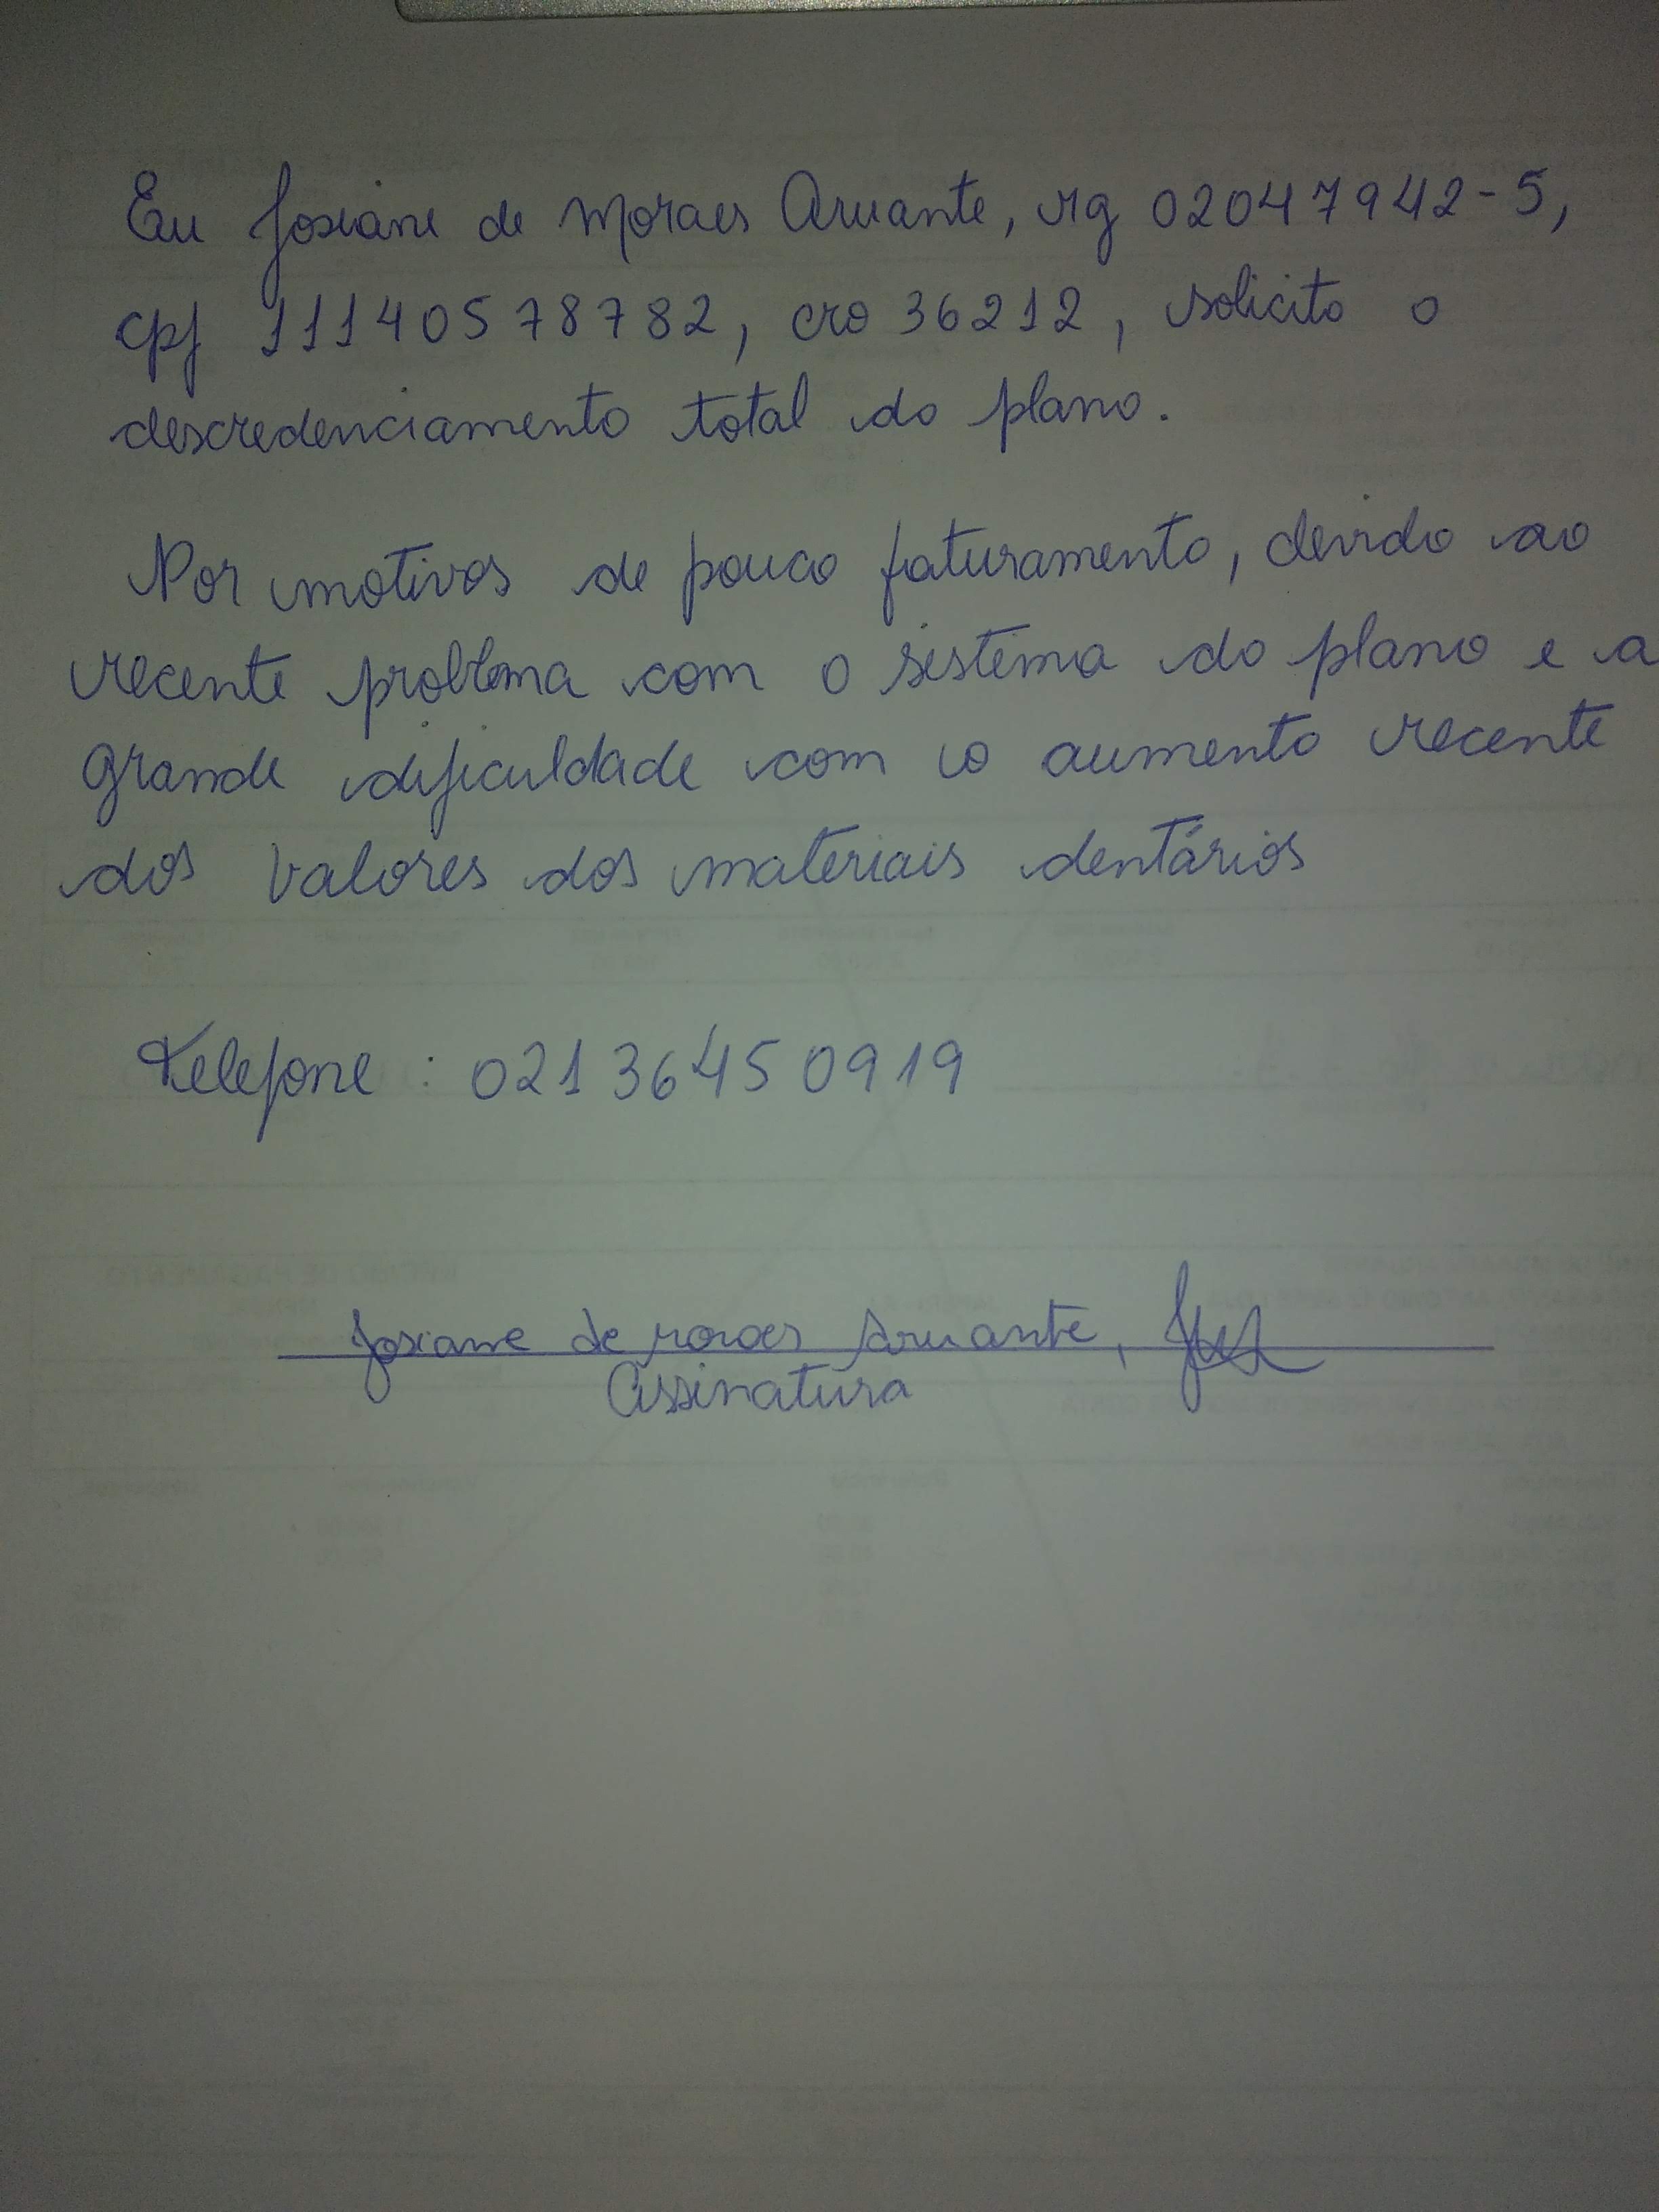 Eu Josiane de Moraes Aruante, rg 02047942-5,
cpf 11140578782, cro 36212, solicito o
descredenciamento total do plano.
Por motivos de pouco faturamento, devido ao
recente problema com o sistema do plano e a
grande dificuldade com o aumento recente
dos valores dos materiais dentários
Telefone : 021 3645 0919
Josiane de moraes Aruante,
Assinatura